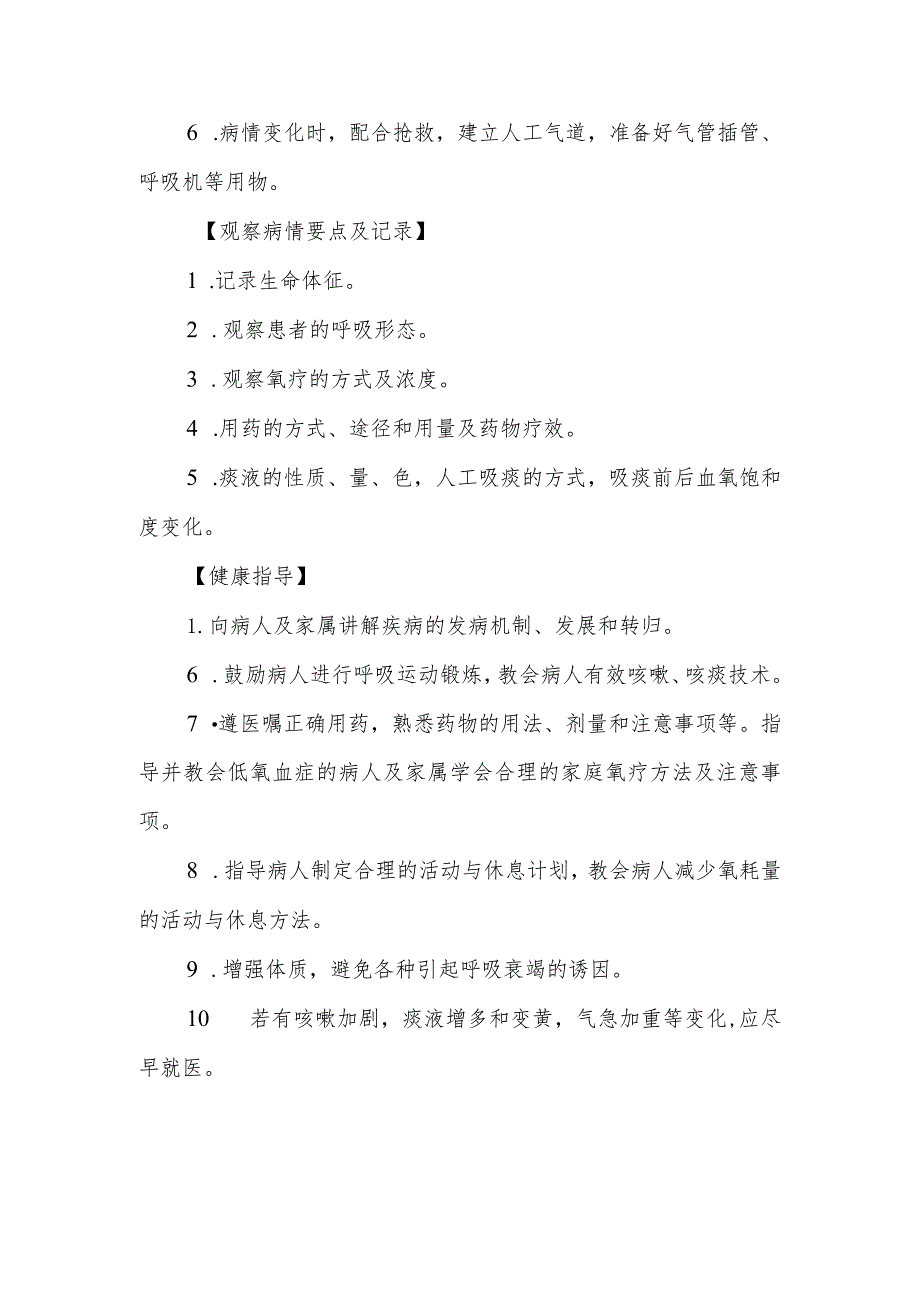 6 .病情变化时，配合抢救，建立人工气道，准备好气管插管、
呼吸机等用物。
【观察病情要点及记录】
1 .记录生命体征。
2 .观察患者的呼吸形态。
3 .观察氧疗的方式及浓度。
4 .用药的方式、途径和用量及药物疗效。
5 .痰液的性质、量、色，人工吸痰的方式，吸痰前后血氧饱和
度变化。
【健康指导】
1.向病人及家属讲解疾病的发病机制、发展和转归。
6 .鼓励病人进行呼吸运动锻炼,教会病人有效咳嗽、咳痰技术。
7 •遵医嘱正确用药，熟悉药物的用法、剂量和注意事项等。指
导并教会低氧血症的病人及家属学会合理的家庭氧疗方法及注意事
项。
8 .指导病人制定合理的活动与休息计划,教会病人减少氧耗量
的活动与休息方法。
9 .增强体质，避免各种引起呼吸衰竭的诱因。
10 若有咳嗽加剧，痰液增多和变黄，气急加重等变化,应尽
早就医。